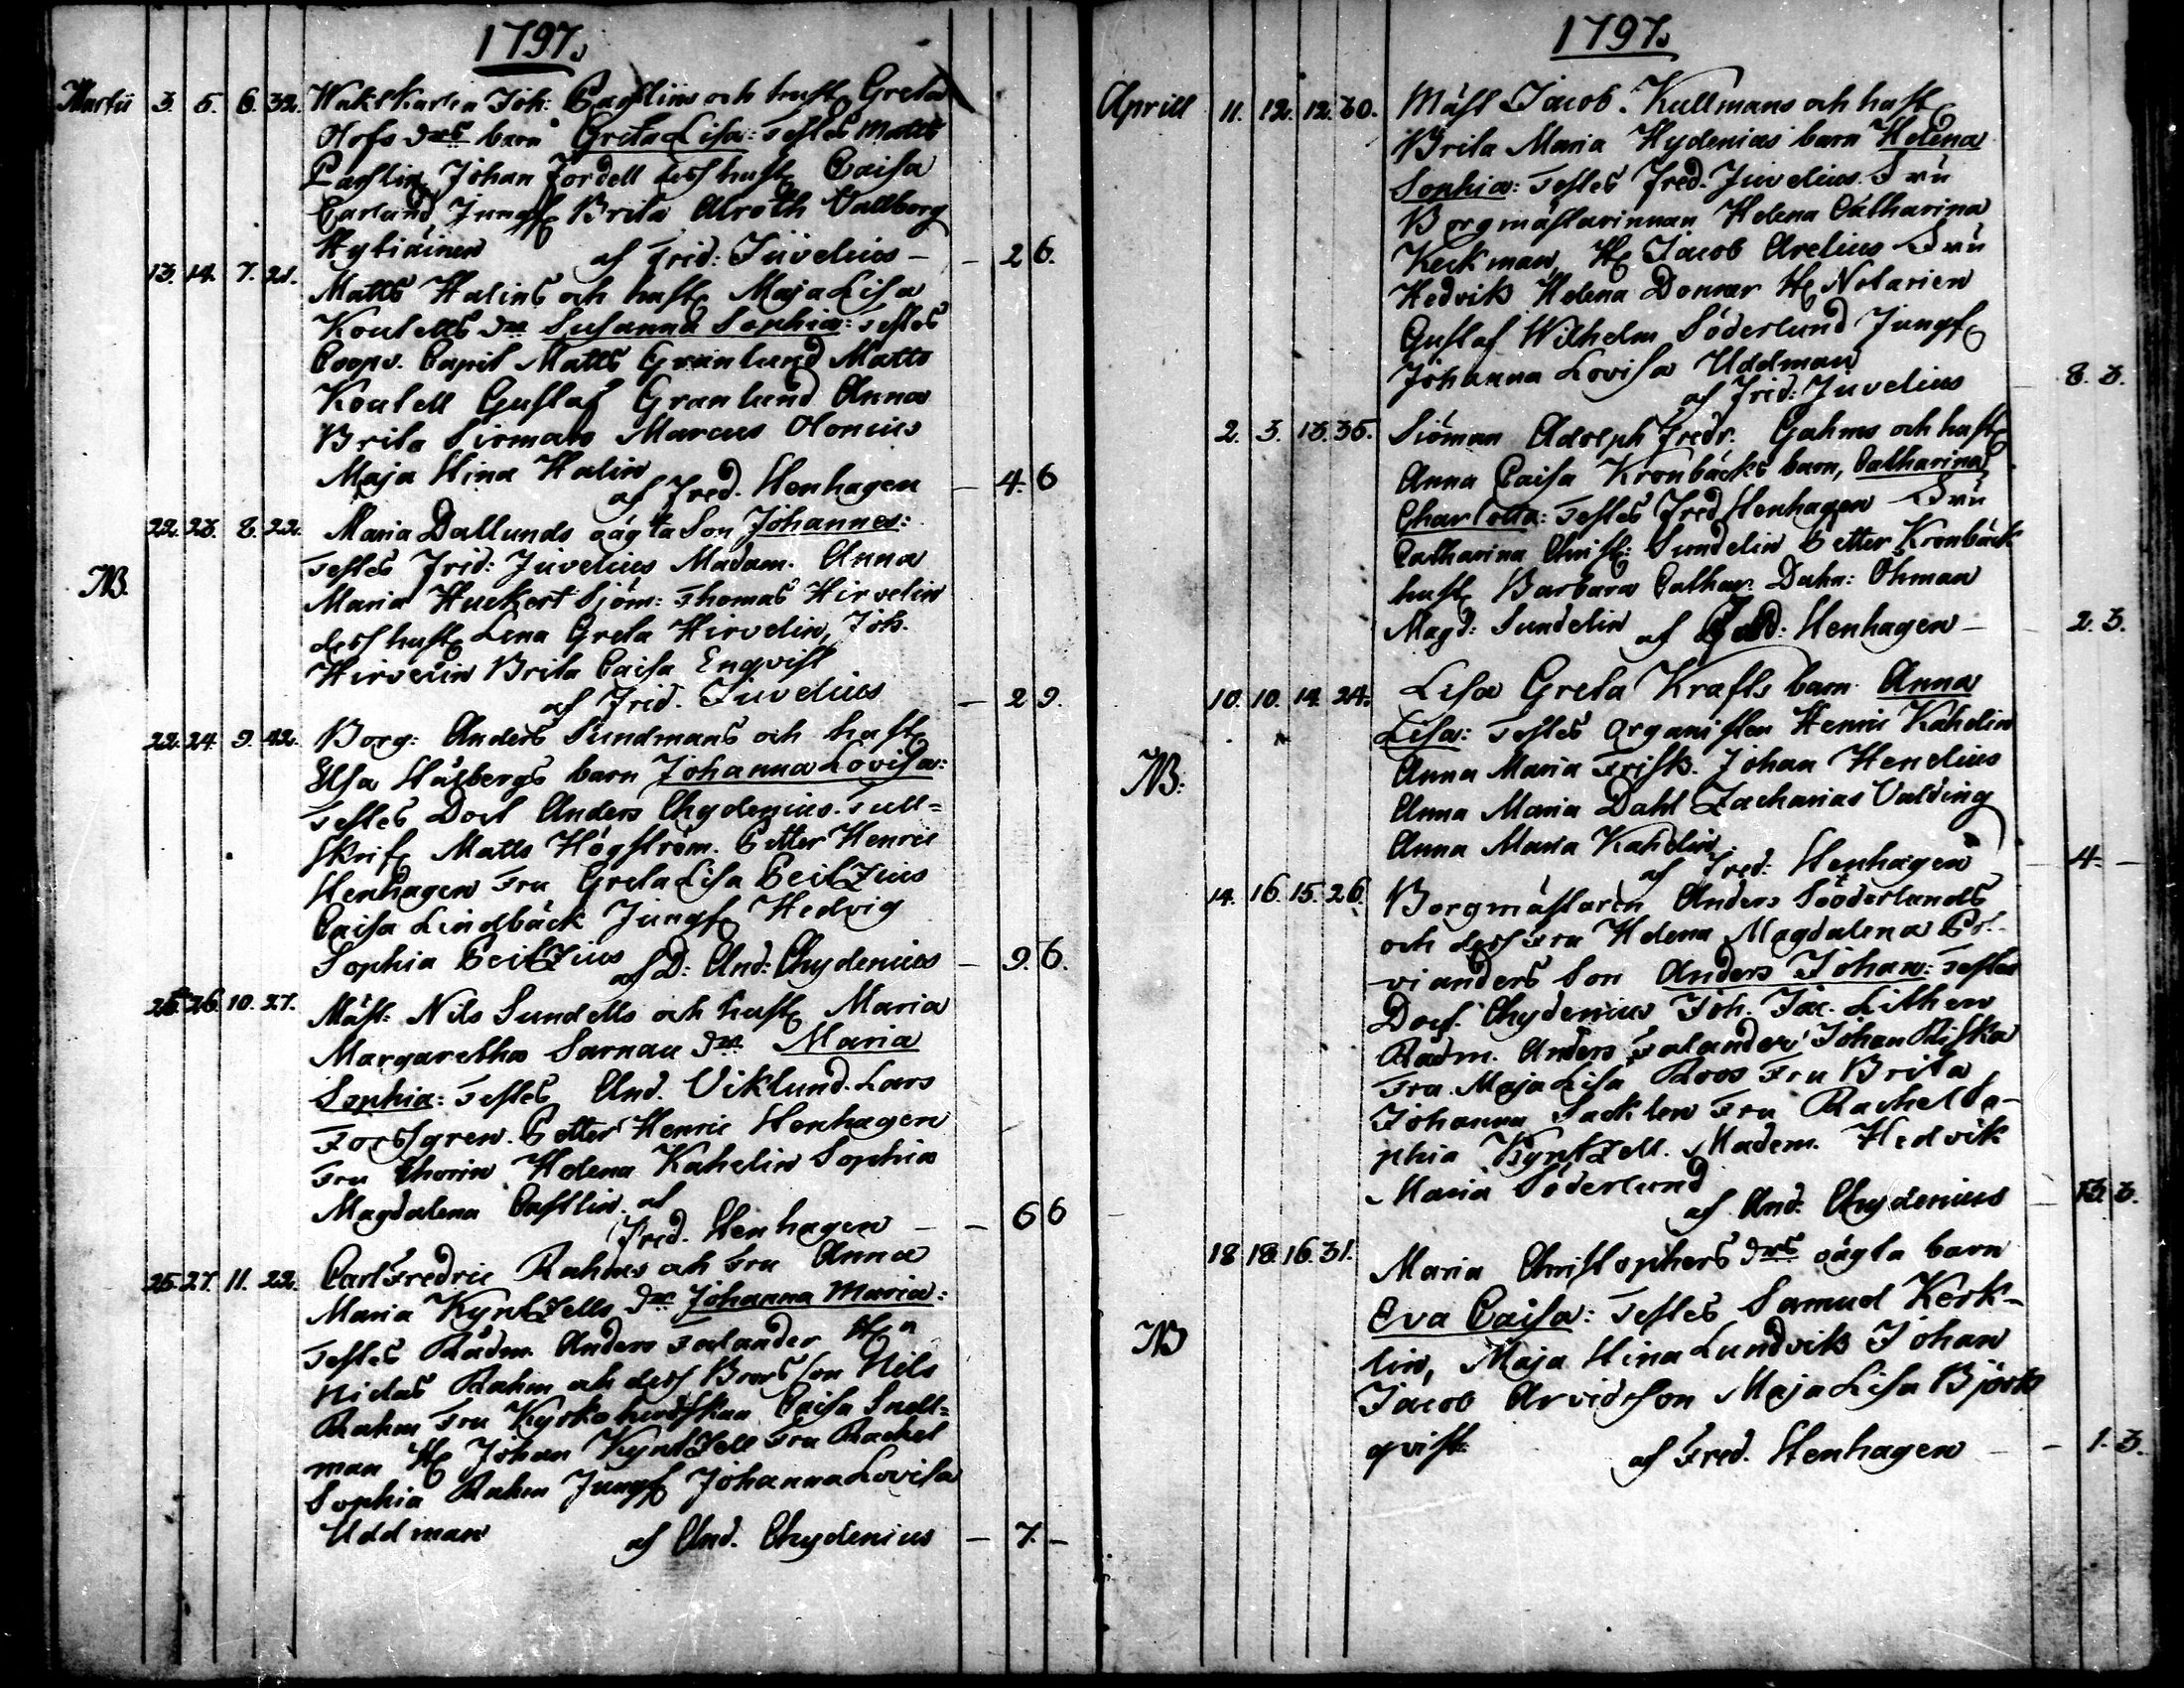 1797.
Martii 3. 5. 6. 32. Waktkarlen Joh: Castlins och hust Greta
Olofs drs barn Greta Lisa: Testes Matts
Castlin Johan Fordell dess hust Caisa
Carlund Jungf Brita Alroth Vallborg
Hytiäinen af Frid: Juvelius — — 2 6.
13. 14. 7. 21. Matts Halins och hust Maja Lisa
Koutells dr Susanna Sophia: Testes
Coopv. Capit Matts Granlund Matts
Koutell Gustaf Granlund Anna
Brita Siomans Marcus Olonius
Maja Stina Halin
af Fred. Stenhagen — 4. 6
22. 23. 8. 22. Maria Dallunds oägta Son Johannes:
Testes Frid: Juvelius Madam. Anna
NB. Maria Huckert Sjöm: Thomas Hirvelin
dess hust Lena Greta Hirvelin, Joh.
Hirvelin Brita Caisa Enqvist
af Frid. Juvelius — 2 9.
22. 24 9. 42. Borg: Anders Sundmans och hust
Elsa Stålbergs barn Johanna Lovisa:
Testes Doct Anders Chydenius. Tull=
skrif Matts Högström. Petter Henric
Stenhagen Fru Greta Lisa Beitzius
Caisa Lindbäck Jungf Hedvig
Sophia Beitzius af D: And: Chydenius — 9. 6.
25. 26. 10. 27. Mäst: Nils Sundells och hust Maria
Margaretha Sarnau dr Maria
Sophia: Testes And. Viklund. Lars
Forssgren. Petter Henric Stenhagen
Fru Thorin Helena Kahelin Sophia
Magdalena Castlin. af
Fred. Stenhagen — — 6 6
25. 27. 11. 22. Carl Fredric Rahms och Fru Anna
Maria Kyntzells dr Johanna Maria:
Testes Rådm. Anders Falander Hr
Niclas Rahm och dess Brors son Nils
Rahm Fru Kyrkoherdskan Caisa Snell=
man Hr Johan Kyntzell Fru Rachel
Sophia Rahm Jungf Johanna Lovisa
Uddman af And. Chydenius — 7. —
1797.
Aprill 11. 12. 12. 30. Mäst Jacob. Kullmans och hust
Brita Maria Hydenias barn Helena
Sophia: Testes Fred. Juvelius. Fru
Borgmästarinnan Helena Catharina
Keckman, Hr Jacob Arelius Fru
Hedvik Helena Donner Hr Notarien
Gustaf Wilhelm Söderlund Jungf
Johanna Lovisa Uddman
af Frid: Juvelius — 8. 3.
2. 3. 13. 35. Siöman Adolph Fredr. Gahms och hust
Anna Caisa Kronbäcks barn, Catharina
Charlotta: Testes Fred Stenhagen Fru
Catharina Christ: Sundelin Petter Kronbäck
hust Barbara Cathar. Dahn: Öhman
Magd: Sundelin af Fred: Stenhagen — — 2. 3.
10. 10. 14. 24. Lisa Greta Krafts barn Anna
Lisa: Testes Organisten Henric Kahelin
NB: Anna Maria Frisk. Johan Henelius
Anna Maria Dahl Zacharias Valding
Anna Maria Kahelin.
af Fred: Stenhagen — 4. —
14. 16. 15. 26. Borgmästaren Anders Sööderlunds
och dess Fru Helena Magdalena
vianders Son Anders Johan: Testes
Doct. Chydenius Joh. Jac. Lithen
Rådm. Anders Falander Johan Riska
Fru. Maja Lisa Roos Fru Brita
Johanna Sacklen Fru Rachel So-
phia Kyntzell. Madem. Hedvik
Maria Söderlund
af And. Chydenius — 3.
18 18. 16. 31. Maria Christophers drs oägta barn
Eva Caisa: Testes Samuel Kerk-
NB lin, Maja Stina Lundvik Johan
Jacob Arvidsson Maja Lisa Björk
qvist af Fred. Stenhagen — — 1. 3.